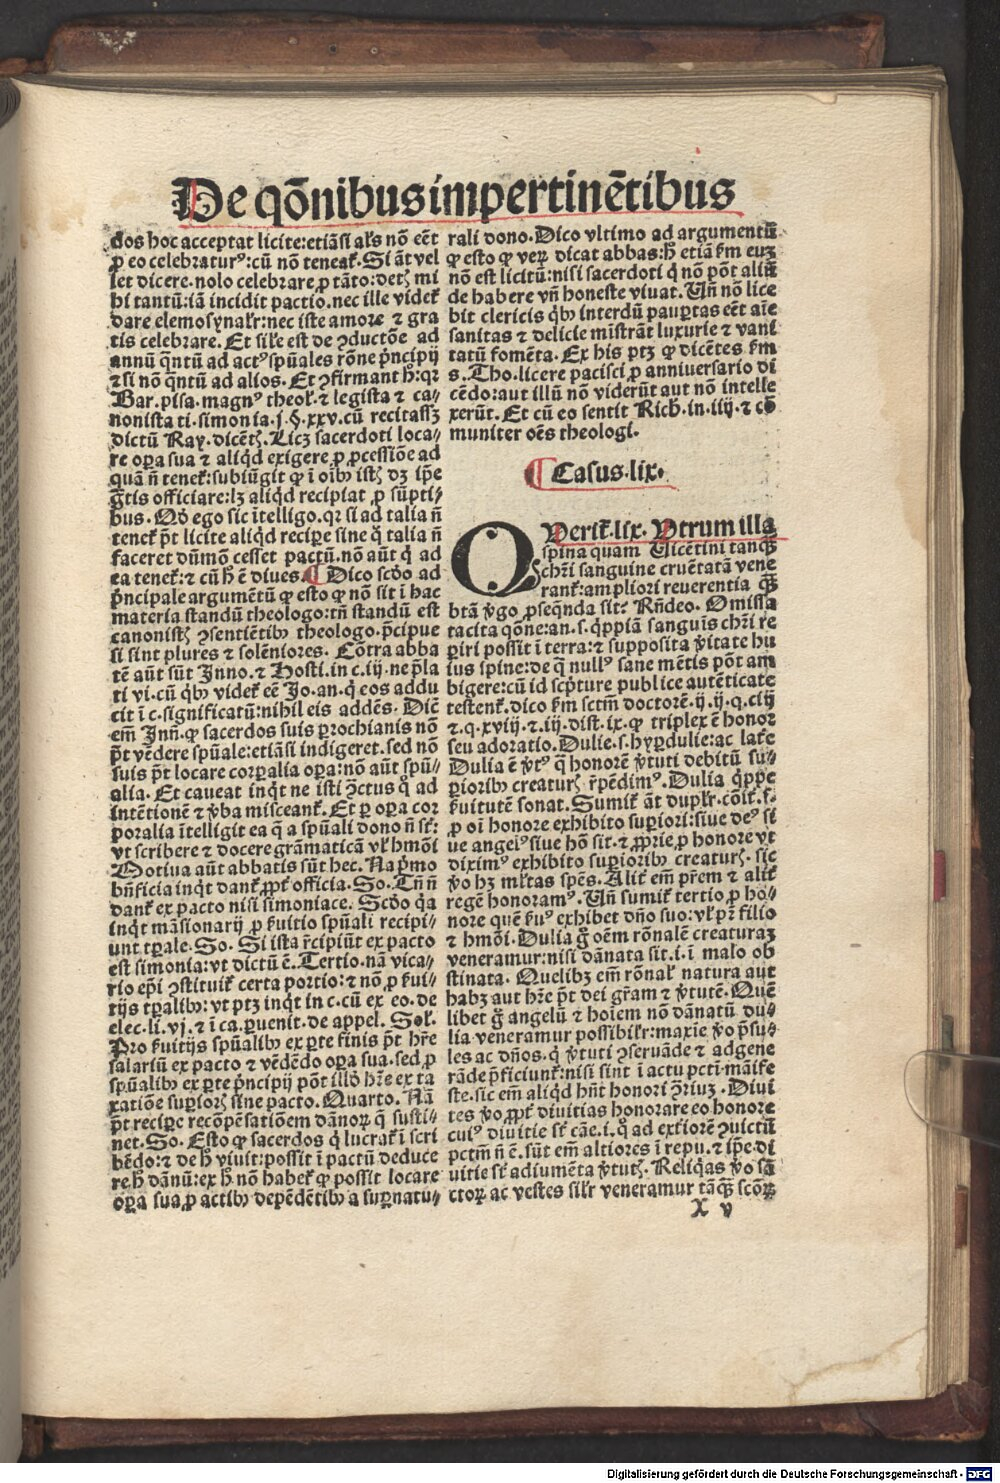 De qōnibus impertinētibus
dos hoc acceptat licite: etiāsi als nō eēt
ꝓ eo celebraturꝰ: cū nō teneat̄. Si āt vel
let dicere. nolo celebrare, ꝓ tāto: detꝭ mi
hi tantū: iā incidit pactio. nec ille videt̄
dare elemosynalr̄: nec iste amore ⁊ gra
tis celebrare. Et sil'e est de ꝯductōe ad
annū q̄ntū ad actꝰ spūales rōne p̄ncipij
⁊ si nō q̄ntū ad alios. Et ꝯfirmant h̄: qꝛ
Bar. pisa. magnꝰ theol. ⁊ legista ⁊ ca⸗
nonista ti. simonia. j. §. xxv. cū recitassꝫ
dictū Ray. dicētꝭ. Licꝫ sacerdoti loca⸗
re oꝑa sua ⁊ aliqd exigere ꝓ ꝓcessiōe ad
quā n̄ tenet̄: subiūgit ꝙ ī oībꝰ istꝭ dꝫ ip̄e
gr̄tis officiare: lꝫ aliqd recipiat ꝓ sūpti⸗
bus. Qđ ego sic ītelligo. qꝛ si ad talia n̄
tenet̄ pt̄ licite aliqd recipe sine q̊ talia n̄
faceret dūmō cesset pactū. nō aūt q̊ ad
ea tenet̄: ⁊ cū h̄ ē dives. ¶ Dico scđo ad
p̄ncipale argumētū ꝙ esto ꝙ nō sit ī hac
materia standū theologo: tn̄ standū est
canonistꝭ ꝯsentiētibꝰ theologo. p̄cipue
si sint plures ⁊ solēniores. Cōtra abba
tē aūt sūt Inno. ⁊ Hosti. in c. iij. ne p̄la
ti vi. cū qbꝰ videt̄ eē Jo. an. q̊ eos addu
cit ī c. significatū: nihil eis addēs. Dic̄
em̄ Inn̄. ꝙ sacerdos suis ꝑrochianis nō
pt̄ vēdere spūale: etiāsi indigeret. sed nō
suis pt̄ locare corꝑalia oꝑa: nō aūt spū⸗
alia. Et caveat inqt ne isti ꝯctus q̊ ad
intētionē ⁊ v̄ba misceant̄. Et ꝑ oꝑa cor
poralia ītelligit ea q̄ a spūali dono n̄ st̄:
vt scribere ⁊ docere grāmaticā vl' hmōi
Motiva aūt abbatis sūt hec. Na p̄mo
bn̄ficia inqt dant̄ ꝓpt̄ officia. So. Tn̄ n̄
dant̄ ex pacto nisi simoniace. Scđo qa
inqt māsionarij ꝓ ẜuitio spūali recipi⸗
unt tꝑale. So. Si ista r̄cipiūt ex pacto
est simonia: vt dictū ē. Tertio. nā vica⸗
rio ep̄i ꝯstituit̄ certa portio: ⁊ nō, ꝓ ẜui⸗
tijs tꝑalibꝰ: vt ptꝫ inqt in c. cū ex eo. de
elec. li. vj. ⁊ ī ca. ꝑuenit. de appel. Sol.
Pro ẜuitijs spūalibꝰ ex ꝑte finis pt̄ hr̄e
salariū ex pacto ⁊ vēdēdo oꝑa sua. sed ꝓ
spūalibꝰ ex ꝑte p̄ncipij pōt illđ hr̄e ex ta
xatiōe suꝑiorꝭ sine pacto. Quarto. Nā
pt̄ recipe recōpēsatiōem dānoꝝ q̄ susti⸗
net. So. Esto ꝙ sacerdos q̊ lucrat̄ ī scri
bēdo: ⁊ de h̄ vivit: possit ī pactū deduce
re. h̄ dānū: ex h̄ nō habet̄ ꝙ possit locare
oꝑa sua, ꝓ actibꝰ depēdētibꝰ a suꝑnatu⸗
rali dono. Dico vltimo ad argumentū
ꝙ esto ꝙ veꝝ dicat abbas: h̄ etiā ẜm euꝫ
nō est licitū: nisi sacerdoti q̊ nō pōt aliū
de habere vn̄ honeste vivat. Vn̄ nō lice
bit clericis qbꝰ interdū pauꝑtas eēt aīe
sanitas ⁊ delicie mīstrāt luxurie ⁊ vani
tatū fomēta. Ex his ptꝫ ꝙ dicētes ẜm
s. Tho. licere pacisci ꝓ anniversario di
cēdo: aut illū nō viderūt aut nō intelle
xerūt. Et cū eo sentit Rich. in. iiij. ⁊ cō
muniter oēs theologi.
¶ Casus. lix.
QUerit̄. lix. Vtrum illa
spina quam Vicētini tanqꝫ
chr̄i sanguine cruētatā vene
rant̄: ampliori reuerentia qꝫ
btā v̄go ꝓseqnda sit? Rn̄deo. Omissa
tacita qōne: an. s. qppiā sanguīs chr̄i re
ꝑiri possit ī terra: ⁊ supposita v̄itate hu
ius spine: de q̊ nullꝰ sane mētis pōt am
bigere: cū id scpture publice autēticate
testent̄. dico ẜm sctm̄ doctorē. ij. ij. q. ciij
⁊. q. xviij. ⁊. iij. dist. ix. ꝙ triplex ē honor
seu adoratio. Dulie. s. hyꝑdulie: ac lat̄e
Dulia ē v̄tꝰ q̄ honorē v̄tuti debitū su⸗
ꝑioribꝰ creaturꝭ r̄pēdimꝰ. Dulia qppe
ẜuitutē sonat. Sumit̄ āt duplr̄. cōit̄. s.
ꝓ oī honore exhibito suꝑiori: siue deꝰ si
ue angelꝰ siue hō sit. ⁊ ꝓprie, ꝓ honore vt
diximꝰ exhibito suꝑioribꝰ creaturꝭ. sic
v̄o hꝫ ml'tas spēs. Alit̄ em̄ pr̄em ⁊ alit̄
regē honoramꝰ. Vn̄ sumit̄ tertio ꝓ ho⸗
nore quē ẜuꝰ exhibet dn̄o suo: vl' pr̄i filio
⁊ hmōi. Dulia g̊ oēm rōnalē creaturaꝫ
veneramur: nisi dānata sit. i. ī malo ob
stinata. Quelibꝫ em̄ rōnal' natura aut
habꝫ aut hr̄e pt̄ dei gr̄am ⁊ v̄tutē. Quē
libet g̊ angelū ⁊ hoīem nō dānatū du⸗
lia veneramur possibilr̄: maxīe v̄o p̄su⸗
les ac dn̄os. q̊ v̄tuti ꝯseruāde ⁊ adgene
rāde p̄ficiunt̄: nisi sint ī actu pctī māife
ste. sic em̄ aliqd hn̄t honori ꝯriuꝫ. Divi
tes v̄o ꝓpt̄ divitias honorare eo honore
cuiꝰ divitie st̄ cāe. i. q̊ ad extiorē ꝯvictū
pctm̄ n̄ ē. sūt em̄ altiores ī repu. ⁊ ip̄e di
uitie st̄ adiumēta v̄tutꝭ. Reliqas v̄o sā
ctoꝝ ac vestes silr̄ veneramur tāqꝫ scōꝝ
X v
Digitalisierung gefördert durch die Deutsche Forschungsgemeinschaft - DFG